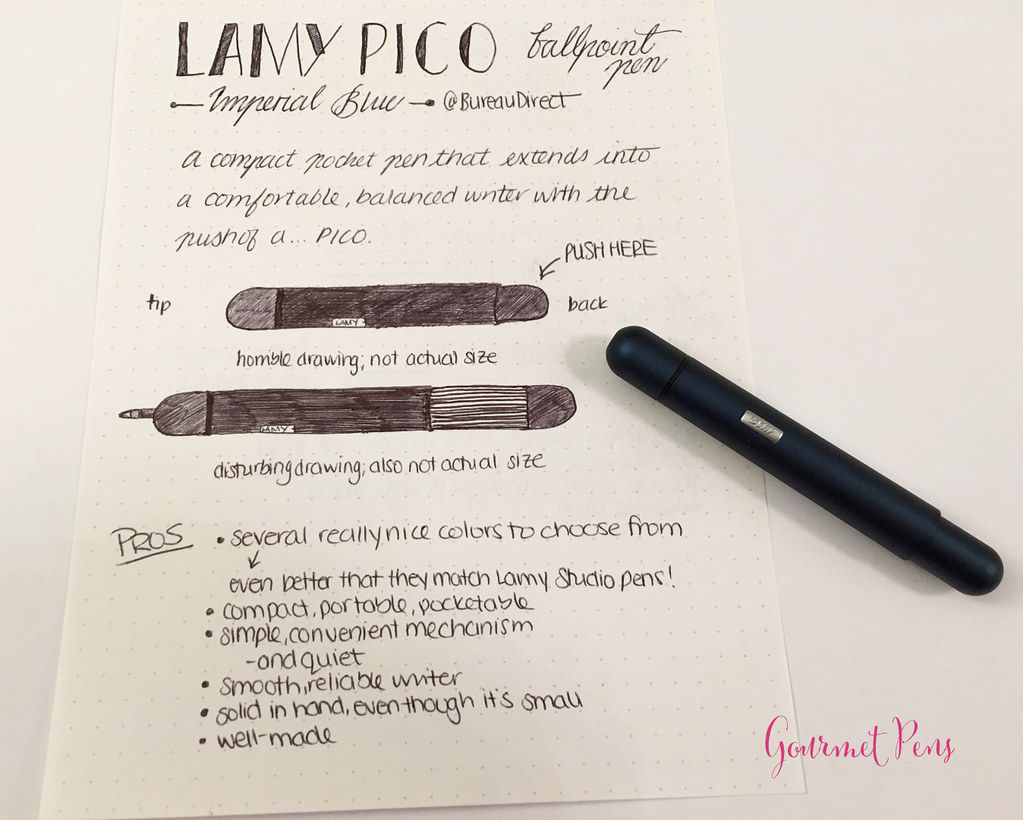 LAMY PICO ballpoint pen
Imperial Blue @BureauDirect
a compact pocket pen that extends into
a comfortable, balanced writer with the
push of a... PICO.
PUSH HERE
tip
back
LAMY
horrible drawing; not actual size
LAMY
disturbing drawing; also not actual size
LAMY
PROS
• several really nice colors to choose from
even better that they match Lamy Studio pens!
• compact, portable, pocketable
• simple, convenient mechanism
- and quiet
• smooth, reliable writer
• solid in hand, even though it's small
• well-made
Gourmet Pens